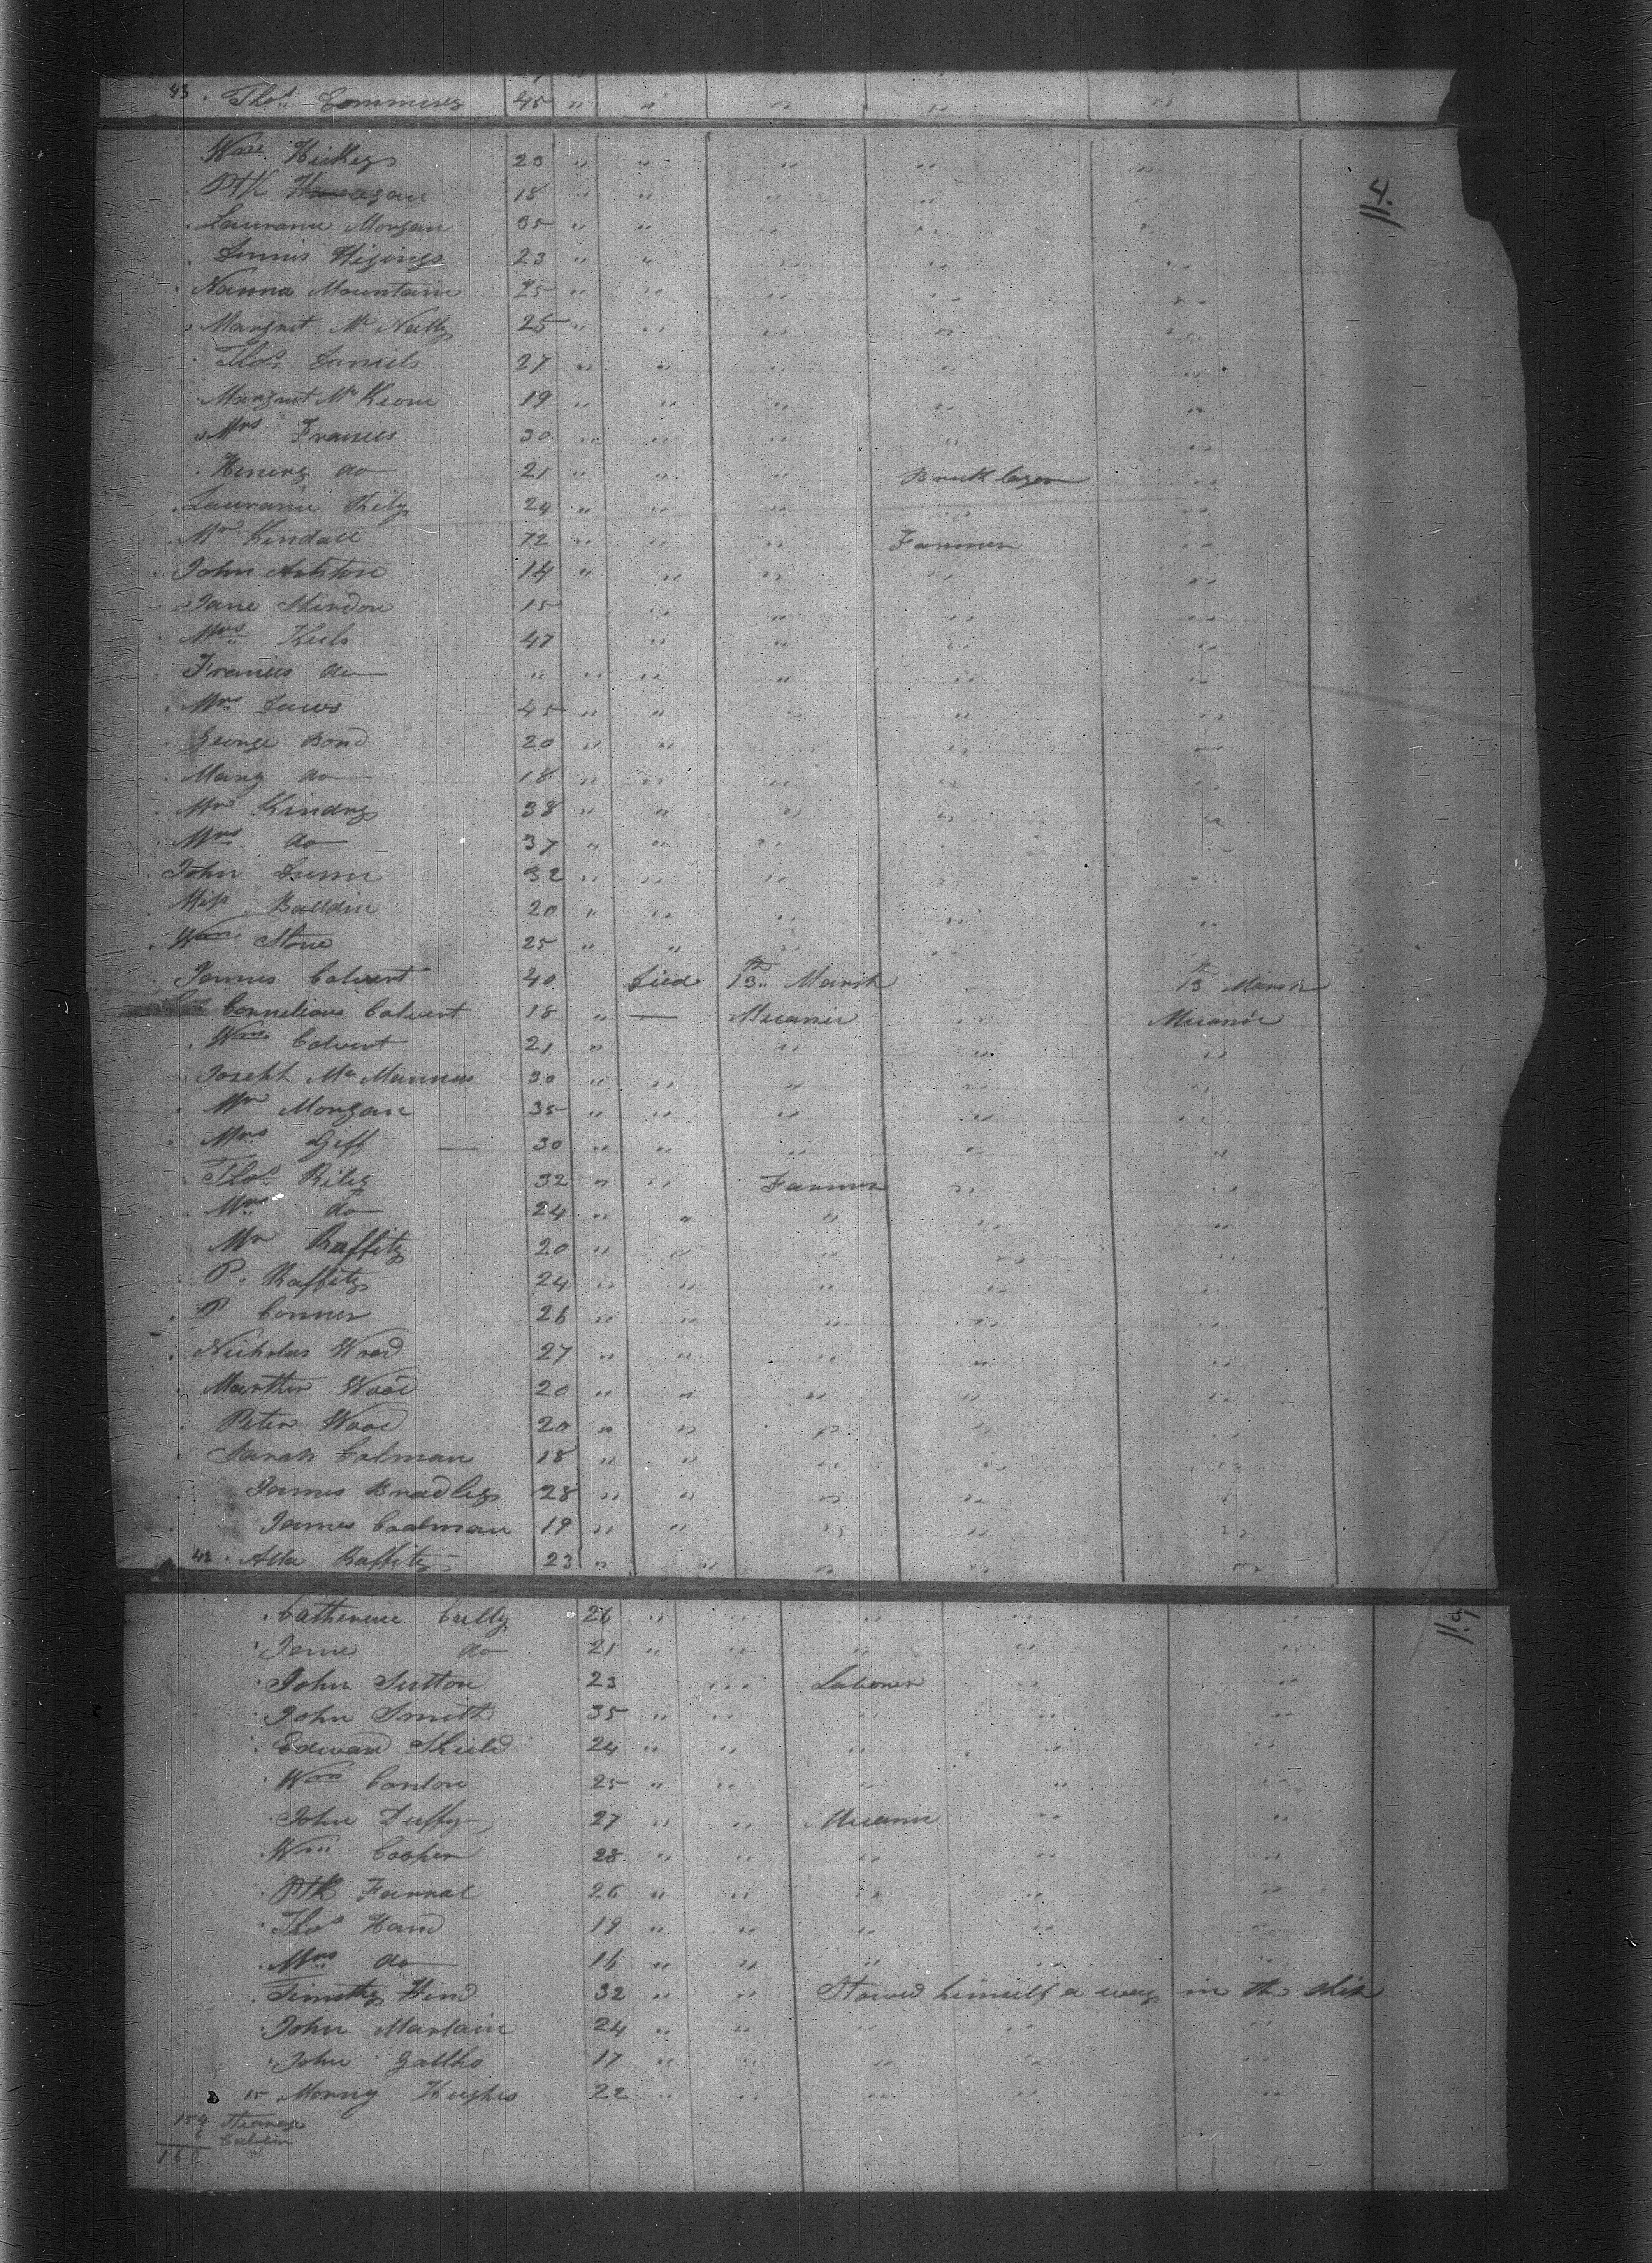 43 Thos Commins 45 " " " " "
Wm Hickey 23 " " " " "
4.
Ptk 18 " " " " "
Laurance Morgan 35 " " " " "
Dinnis Higings 23 " " " " "
Nanna Mountain 25 " " " " "
Margrit Mc Nully 25 " " " " "
Thos Daniels 27 " " " " "
Margrut Mc Keone 19 " " " " "
Mrs Francis 30 " " " " "
Henery do 21 " " " Brick layer "
Laurance Rily 24 " " " " "
Mr Kendall 72 " " " Farmer "
John Ashton 14 " " " " "
Jane 15 " " " "
Mrs 47 " " " "
Francis do " " " " " "
Mrs Daws 45 " " " " "
George Bond 20 " " " " "
Mary do 18 " " " " "
Mr Kindry 38 " " " " "
Mrs do 37 " " " " "
John Dunn 32 " " " " "
Miss Balldin 20 " " " " "
Wm Stone 25 " " " " "
James Calvert 40 Died 13th March " 13th March
Cornelious Calvert 18 " — Mecanic " Mecanic
Wm Calvert 21 " " " "
Joseph Mc Mannus 30 " " " " "
Mr Morgan 35 " " " " "
Mrs Giff — 30 " " " " "
Thos Riley 32 " " Farmer " "
Mrs do 24 " " " " "
Mr Raffity 20 " " " " "
P. Raffity 24 " " " " "
P Conner 26 " " " " "
Nicholas Wood 27 " " " " "
Marther Wood 20 " " " " "
Peter Wood 20 " " " " "
Sarah Colman 18 " " " " "
James Bradley 28 " " " " "
James Coalman 19 " " " " "
42 Alla Raffity 23 " " " " "
Catherine Cully 26 " " " " "
5
Jane do 21 " " " " "
John Sutton 23 " Laborer " "
John Smith 35 " " " " "
Edward Shield 24 " " " " "
Wm Conlon 25 " " " " "
John Duffy 27 " " Mecanic " "
Wm Cooper 28 " " " " "
Ptk Farral 26 " " " " "
Thos Hand 19 " " " " "
Mrs do 16 " " " " "
Timothy Hind 32 " " Stowed himself a way in the ship
John Martain 24 " " " " "
John Gallho 17 " " " " "
15 Morny Hughes 22 " " " " "
154 Stearage
6 Cabin
160